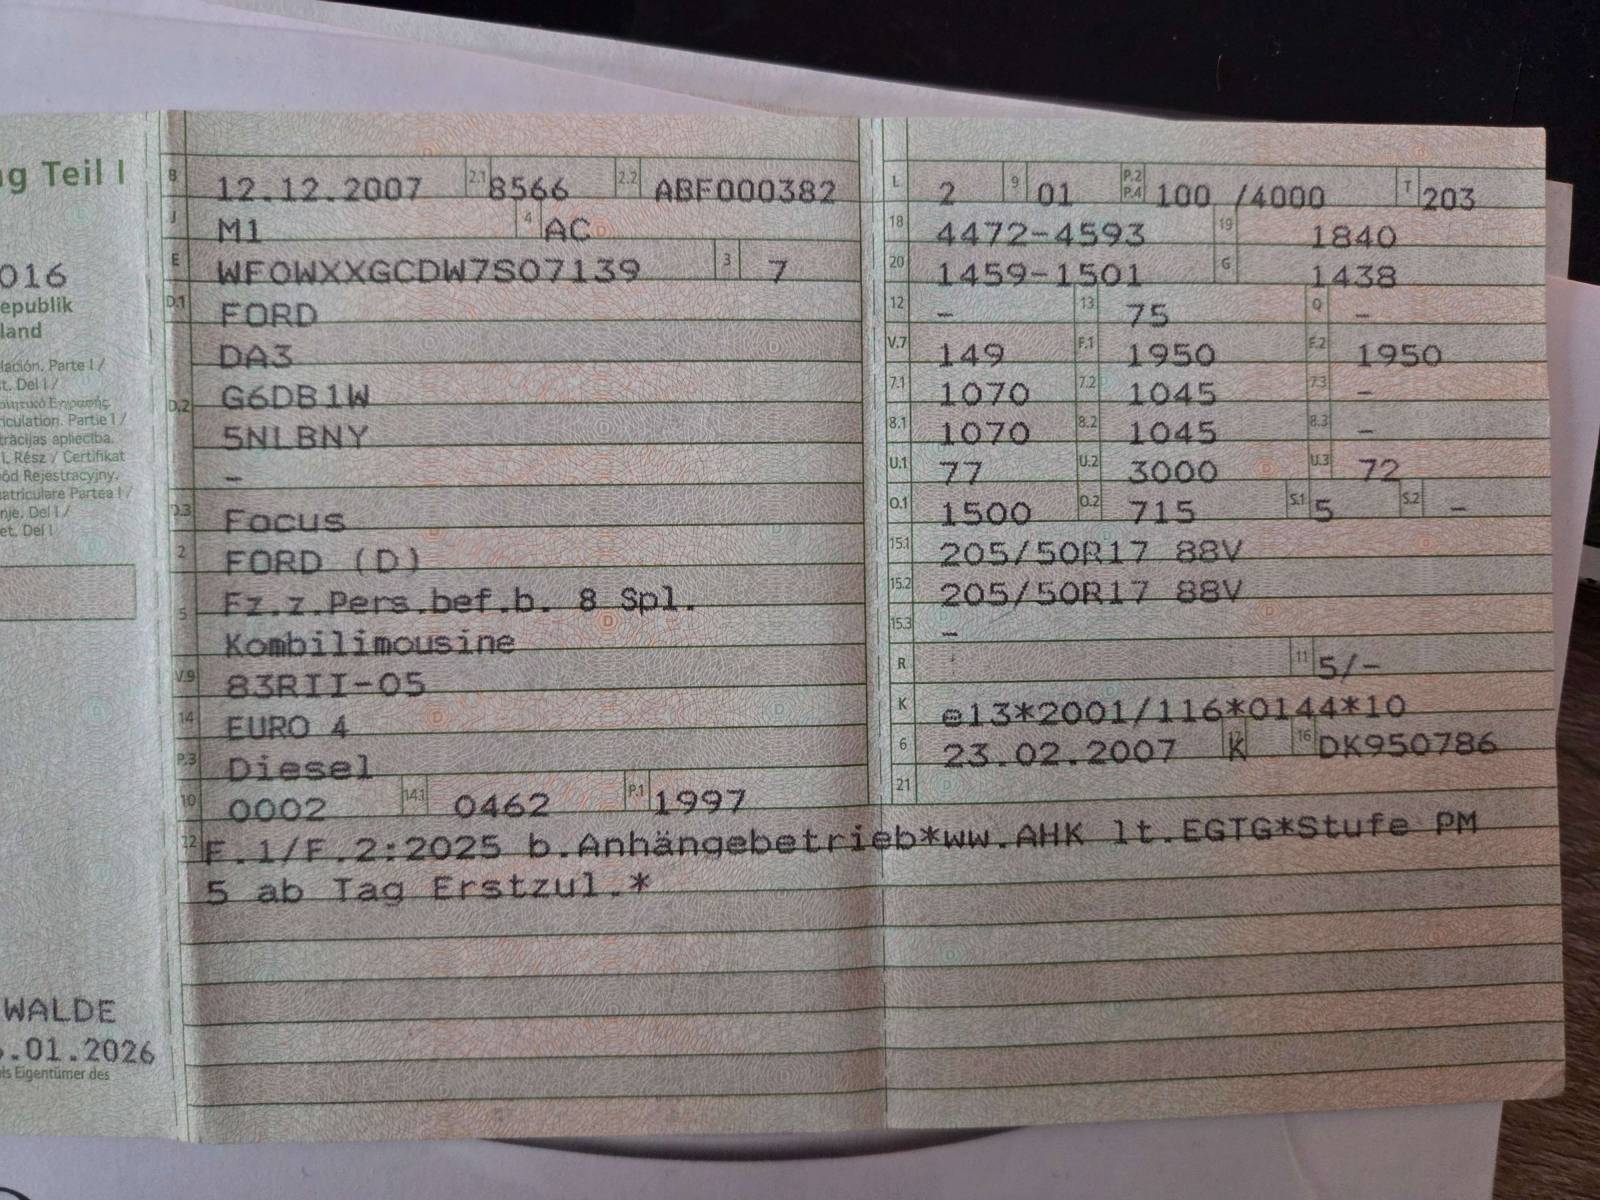 ng Teil I
016
epublik
land
lación. Parte I /
st. Del I /
iculation. Partie I /
trācijas apliecība.
I. Rész / Certifikat
ód Rejestracyjny.
matriculare Partea I /
nje. Del I /
et. Del I
WALDE
.01.2026
ls Eigentümer des
B 12.12.2007 2.1 8566 2.2 ABF000382
J M1 4 AC
E WF0WXXGCDW7S07139 3 7
D.1 FORD
DA3
D.2 G6DB1W
5NLBNY
-
D.3 Focus
2 FORD (D)
5 Fz.z.Pers.bef.b. 8 Spl.
Kombilimousine
V.9 83RII-05
14 EURO 4
P.3 Diesel
10 0002 14.1 0462 P.1 1997
L 2 9 01 P.2 P.4 100 /4000 T 203
18 4472-4593 19 1840
20 1459-1501 G 1438
12 - 13 75 Q -
V.7 149 F.1 1950 F.2 1950
7.1 1070 7.2 1045 7.3 -
8.1 1070 8.2 1045 8.3 -
U.1 77 U.2 3000 U.3 72
O.1 1500 O.2 715 S.1 5 S.2 -
15.1 205/50R17 88V
15.2 205/50R17 88V
15.3 -
R 11 5/-
K e13*2001/116*0144*10
6 23.02.2007 17 K 16 DK950786
21
22 F.1/F.2:2025 b.Anhängebetrieb*ww.AHK lt.EGTG*Stufe PM
5 ab Tag Erstzul.*